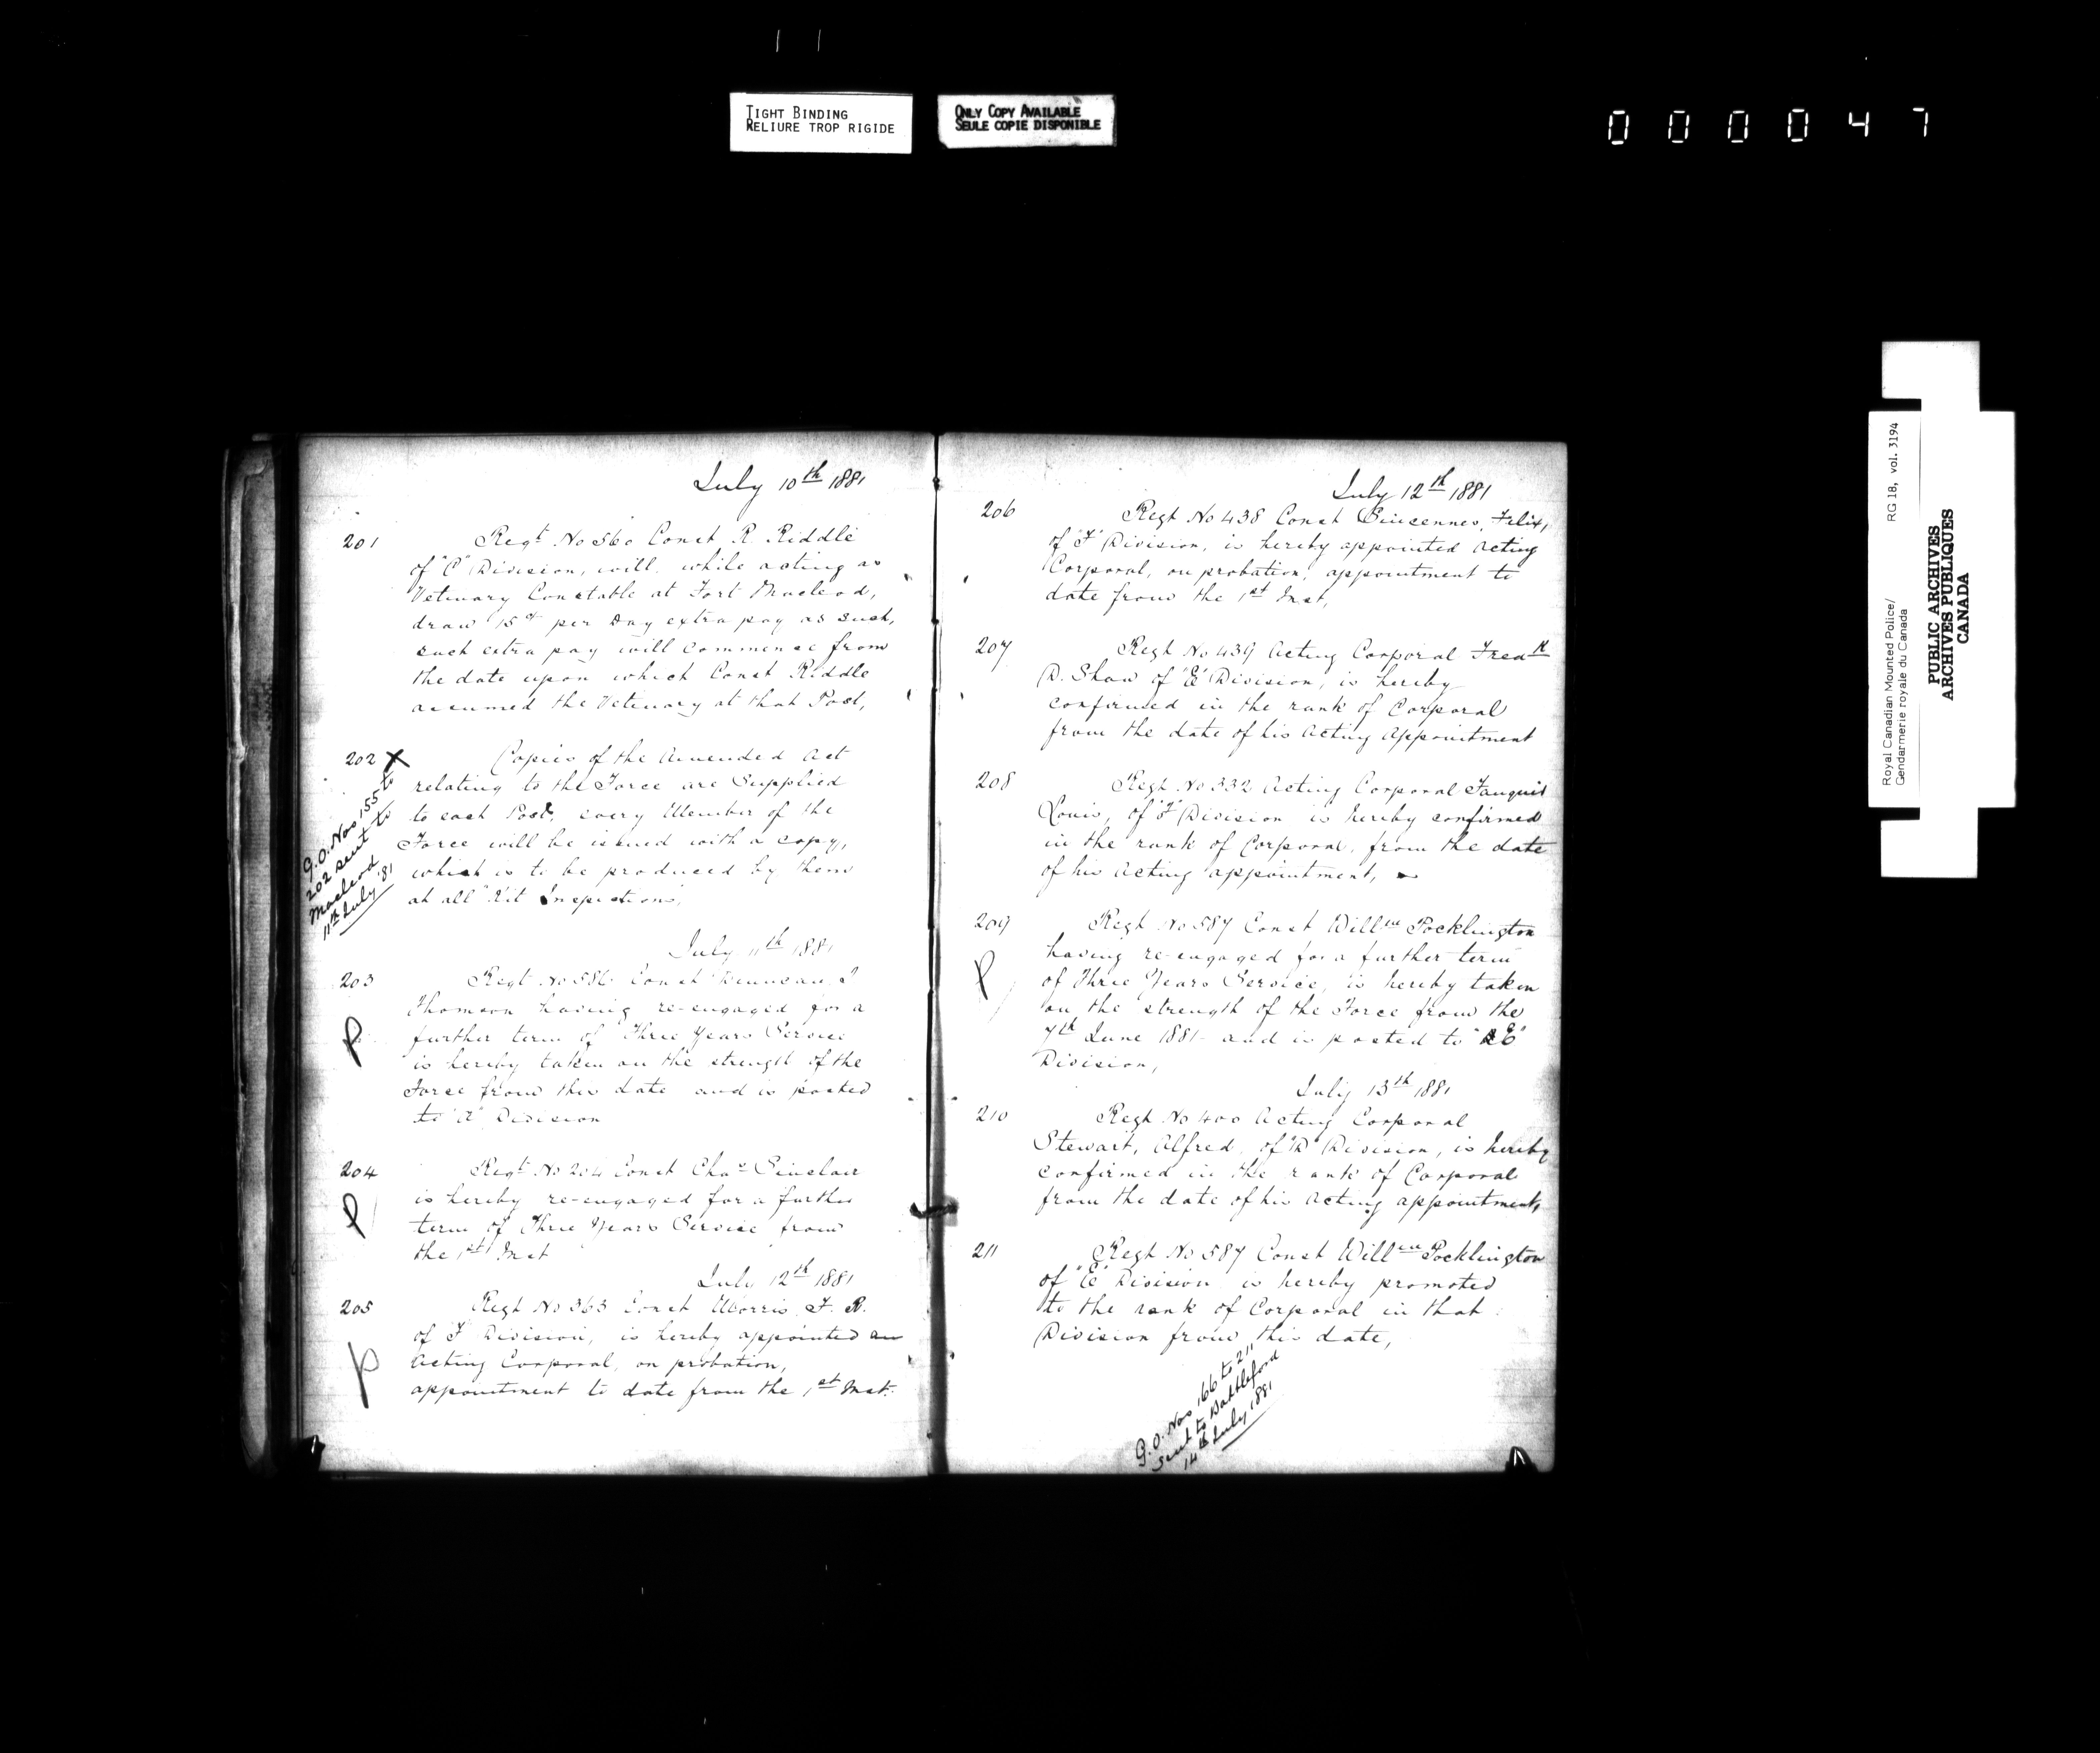 TIGHT BINDING
RELIURE TROP RIGIDE
ONLY COPY AVAILABLE
SEULE COPIE DISPONIBLE
000047
July 10th 1881
201 Regt No 560 Const R. Riddle
of "C" Division, will while acting as
Vetinary Constable at Fort Macleod,
draw 15cts per Day extra pay as such,
such extra pay will commence from
the date upon which Const Riddle
assumed the Vetinary at that Post,
202 X Copies of the Amended Act
relating to the Force are Supplied
to each Post, every Member of the
Force will be issued with a copy,
which is to be produced by them
at all "Kit Inspections,
G.O. Nos 155 to
202 sent to
Macleod
11th July '81
July 11th 1881
203 Regt No 586 Const Dunncan J
Thomson having re-engaged for a
further term of Three Years Service
is hereby taken on the strength of the
Force from this date and is posted
to "A" Division
204 Regt No 204 Const Chas Sinclair
is hereby re-engaged for a further
term of Three Years Service from
the 1st Inst
July 12th 1881
205 Regt No 363 Const Morris, F. R.
of F Division, is hereby appointed an
Acting Corporal, on probation,
appointment to date from the 1st Inst.
July 12th 1881
206 Regt No 438 Const Felix,
of "F" Division, is hereby appointed Acting
Corporal, on probation, appointment to
date from the 1st Inst,
207 Regt No 439 Acting Corporal Fredk
D. Shaw of "E" Division, is hereby
confirmed in the rank of Corporal
from the date of his Acting Appointment
208 Regt No 332 Acting Corporal
Louis, of "F" Division is hereby confirmed
in the rank of Corporal, from the date
of his Acting appointment,
209 Regt No 587 Const Willm Pocklington
having re-engaged for a further term
of Three Years Service, is hereby taken
on the strength of the Force from the
7th June 1881 and is posted to "E"
Division,
July 13th 1881
210 Regt No 400 Acting Corporal
Stewart, Alfred, of "D" Division, is hereby
confirmed in the rank of Corporal
from the date of his Acting appointment,
211 Regt No 587 Const Willm Pocklington
of "E" Division is hereby promoted
to the rank of Corporal in that
Division from this date,
G.O. Nos 166 to 211
sent to Battleford
14th July 1881
Royal Canadian Mounted Police/
Gendarmerie royale du Canada
RG 18, vol. 3194
PUBLIC ARCHIVES
ARCHIVES PUBLIQUES
CANADA